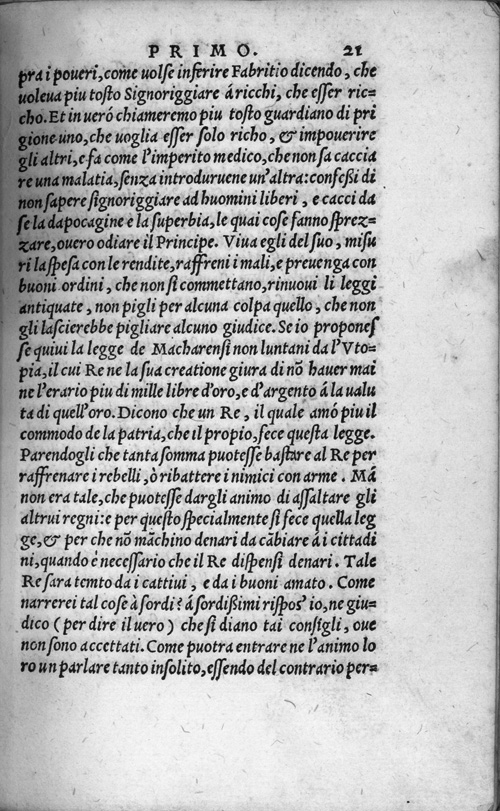 PRIMO. 21
pra i poueri, come uolse inferire Fabritio dicendo, che
uoleua piu tosto Signoriggiare á ricchi, che esser ric-
cho. Et in ueró chiameremo piu tosto guardiano di pri
gione uno, che uoglia esser solo richo, & impouerire
gli altri, e fa come l'imperito medico, che non sa caccia
re una malatia, senza introduruene un'altra: confeßi di
non sapere signoriggiare ad huomini liberi, e cacci da
se la dapocagine e la superbia, le quai cose fanno sprez-
zare, ouero odiare il Principe. Viua egli del suo, misu
ri la spesa con le rendite, raffreni i mali, e preuenga con
buoni ordini, che non si commettano, rinuoui li leggi
antiquate, non pigli per alcuna colpa quello, che non
gli lascierebbe pigliare alcuno giudice. Se io propones
se quiui la legge de Macharensi non luntani da l'Vto-
pia, il cui Re ne la sua creatione giura di nõ hauer mai
ne l'erario piu di mille libre d'oro, e d'argento á la ualu
ta di quell'oro. Dicono che un Re, il quale amó piu il
commodo de la patria, che il propio, fece questa legge.
Parendogli che tanta somma puotesse bastare al Re per
raffrenare i rebelli, ò ribattere i nimici con arme. Má
non era tale, che puotesse dargli animo di assaltare gli
altrui regni: e per questo specialmente si fece quella leg
ge, & per che nõ mãchino denari da cãbiare á i cittadi
ni, quando è necessario che il Re dispensi denari. Tale
Re sara temto da i cattiui, e da i buoni amato. Come
narrerei tal cose à sordi? á sordißimi rispos' io, ne giu-
dico (per dire il uero) che si diano tai consigli, oue
non sono accettati. Come puotra entrare ne l'animo lo
ro un parlare tanto insolito, essendo del contrario per-